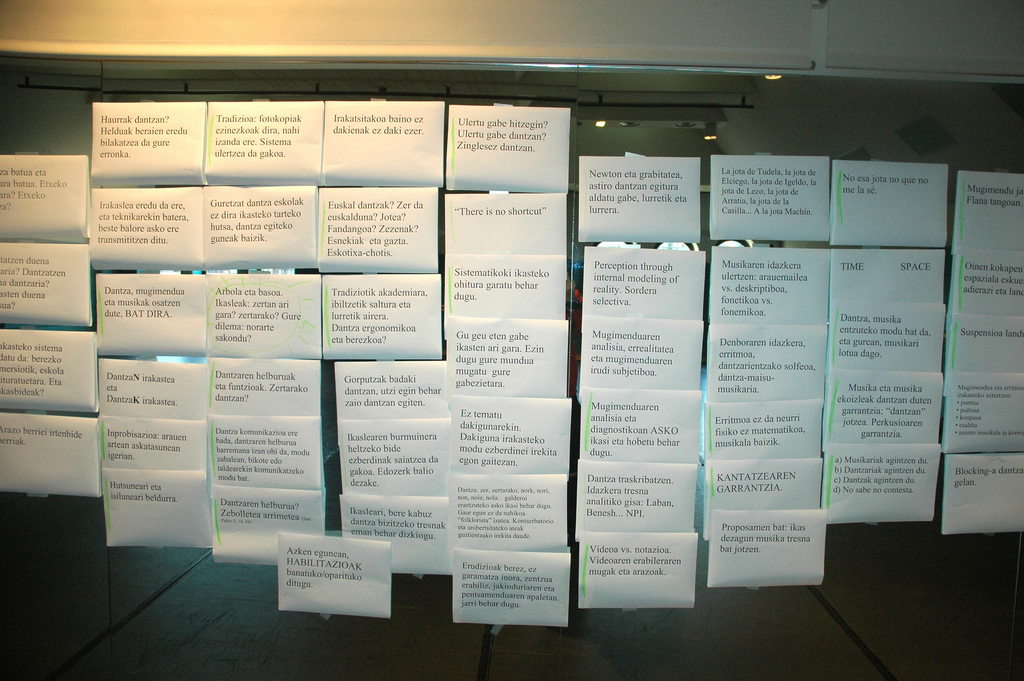 za batua eta
ara batua. Etxeko
ara? Etxeko
za?
tatzen duena
ntzaria? Dantzatzen
asten duena
sua?
akasteko sistema
datu da: berezko
imersiotik, eskola
ituratuetara. Eta
kasbideak?
Arazo berriei irtenbide
berriak.
Haurrak dantzan?
Helduak beraien eredu
bilakatzea da gure
erronka.
Irakaslea eredu da ere,
eta teknikarekin batera,
beste balore asko ere
transmititzen ditu.
Dantza, mugimendua
eta musikak osatzen
dute, BAT DIRA.
DantzaN irakastea
eta
DantzaK irakastea.
Inprobisazioa: arauen
artean askatasunean
igerian.
Hutsuneari eta
isiluneari beldurra.
Tradizioa: fotokopiak
ezinezkoak dira, nahi
izanda ere. Sistema
ulertzea da gakoa.
Guretzat dantza eskolak
ez dira ikasteko tarteko
hutsa, dantza egiteko
guneak baizik.
Arbola eta basoa.
Ikasleak: zertan ari
gara? zertarako? Gure
dilema: norarte
sakondu?
Dantzaren helburuak
eta funtzioak. Zertarako
dantzan?
Dantza komunikazioa ere
bada, dantzaren helburua
harremana izan ohi da, modu
zabalean, bikote edo
taldearekin komunikatzeko
modu bat.
Dantzaren helburua?
Zebolletea arrimetea
Azken egunean,
HABILITAZIOAK
banatuko/oparituko
ditugu.
Irakatsitakoa baino ez
dakienak ez daki ezer.
Euskal dantzak? Zer da
euskalduna? Jotea?
Fandangoa? Zezenak?
Esnekiak eta gazta.
Eskotixa-chotis.
Tradiziotik akademiara,
ibiltzetik saltura eta
lurretik airera.
Dantza ergonomikoa
eta berezkoa?
Gorputzak badaki
dantzan, utzi egin behar
zaio dantzan egiten.
Ikaslearen burmuinera
heltzeko bide
ezberdinak saiatzea da
gakoa. Edozerk balio
dezake.
Ikasleari, bere kabuz
dantza bizitzeko tresnak
eman behar dizkiogu.
Ulertu gabe hitzegin?
Ulertu gabe dantzan?
Zinglesez dantzan.
“There is no shortcut”
Sistematikoki ikasteko
ohitura garatu behar
dugu.
Gu geu eten gabe
ikasten ari gara. Ezin
dugu gure mundua
mugatu gure
gabezietara.
Ez tematu
dakigunarekin.
Dakiguna irakasteko
modu ezberdinei irekita
egon gaitezan.
Dantza: zer, zertarako, nork, nori,
non, noiz, nola... galderoi
erantzuteko asko ikasi behar dugu.
Gaur egun ez da nahikoa
“folklorista” izatea. Kontserbatorio
eta unibertsitateko ateak
guztientzako irekita daude.
Erudizioak berez, ez
garamatza inora, zentzua
erabiliz, jakinduriaren eta
pentsamenduaren apaletan
jarri behar dugu.
Newton eta grabitatea,
astiro dantzan egitura
aldatu gabe, lurretik eta
lurrera.
Perception through
internal modeling of
reality. Sordera
selectiva.
Mugimenduaren
analisia, errealitatea
eta mugimenduaren
irudi subjetiboa.
Mugimenduaren
analisia eta
diagnostikoan ASKO
ikasi eta hobetu behar
dugu.
Dantza traskribatzen.
Idazkera tresna
analitiko gisa: Laban,
Benesh... NPI.
Videoa vs. notazioa.
Videoaren erabileraren
mugak eta arazoak.
La jota de Tudela, la jota de
Elciego, la jota de Igeldo, la
jota de Lezo, la jota de
Arratia, la jota de la
Casilla... A la jota Machín.
Musikaren idazkera
ulertzen: arauemailea
vs. deskriptiboa,
fonetikoa vs.
fonemikoa.
Denboraren idazkera,
erritmoa,
dantzarientzako solfeoa,
dantza-maisu-
musikaria.
Erritmoa ez da neurri
fisiko ez matematikoa,
musikala baizik.
KANTATZEAREN
GARRANTZIA.
Proposamen bat: ikas
dezagun musika tresna
bat jotzen.
No esa jota no que no
me la sé.
TIME SPACE
Dantza, musika
entzuteko modu bat da,
eta gurean, musikari
lotua dago.
Musika eta musika
ekoizleak dantzan duten
garrantzia: “dantzan”
jotzea. Perkusioaren
garrantzia.
a) Musikariak agintzen du.
b) Dantzariak agintzen du.
c) Dantzak agintzen du.
d) No sabe no contesta.
Mugimendu ja
Flana tangoan.
Oinen kokapen
espaziala eskue
adierazi eta land
Suspensioa landu
Mugimendua eta erritmoa
irakasteko aztertzen:
• puntua
• pultsua
• konpasa
• esaldia
• azentu musikala ta koreo
Blocking-a dantza
gelan.